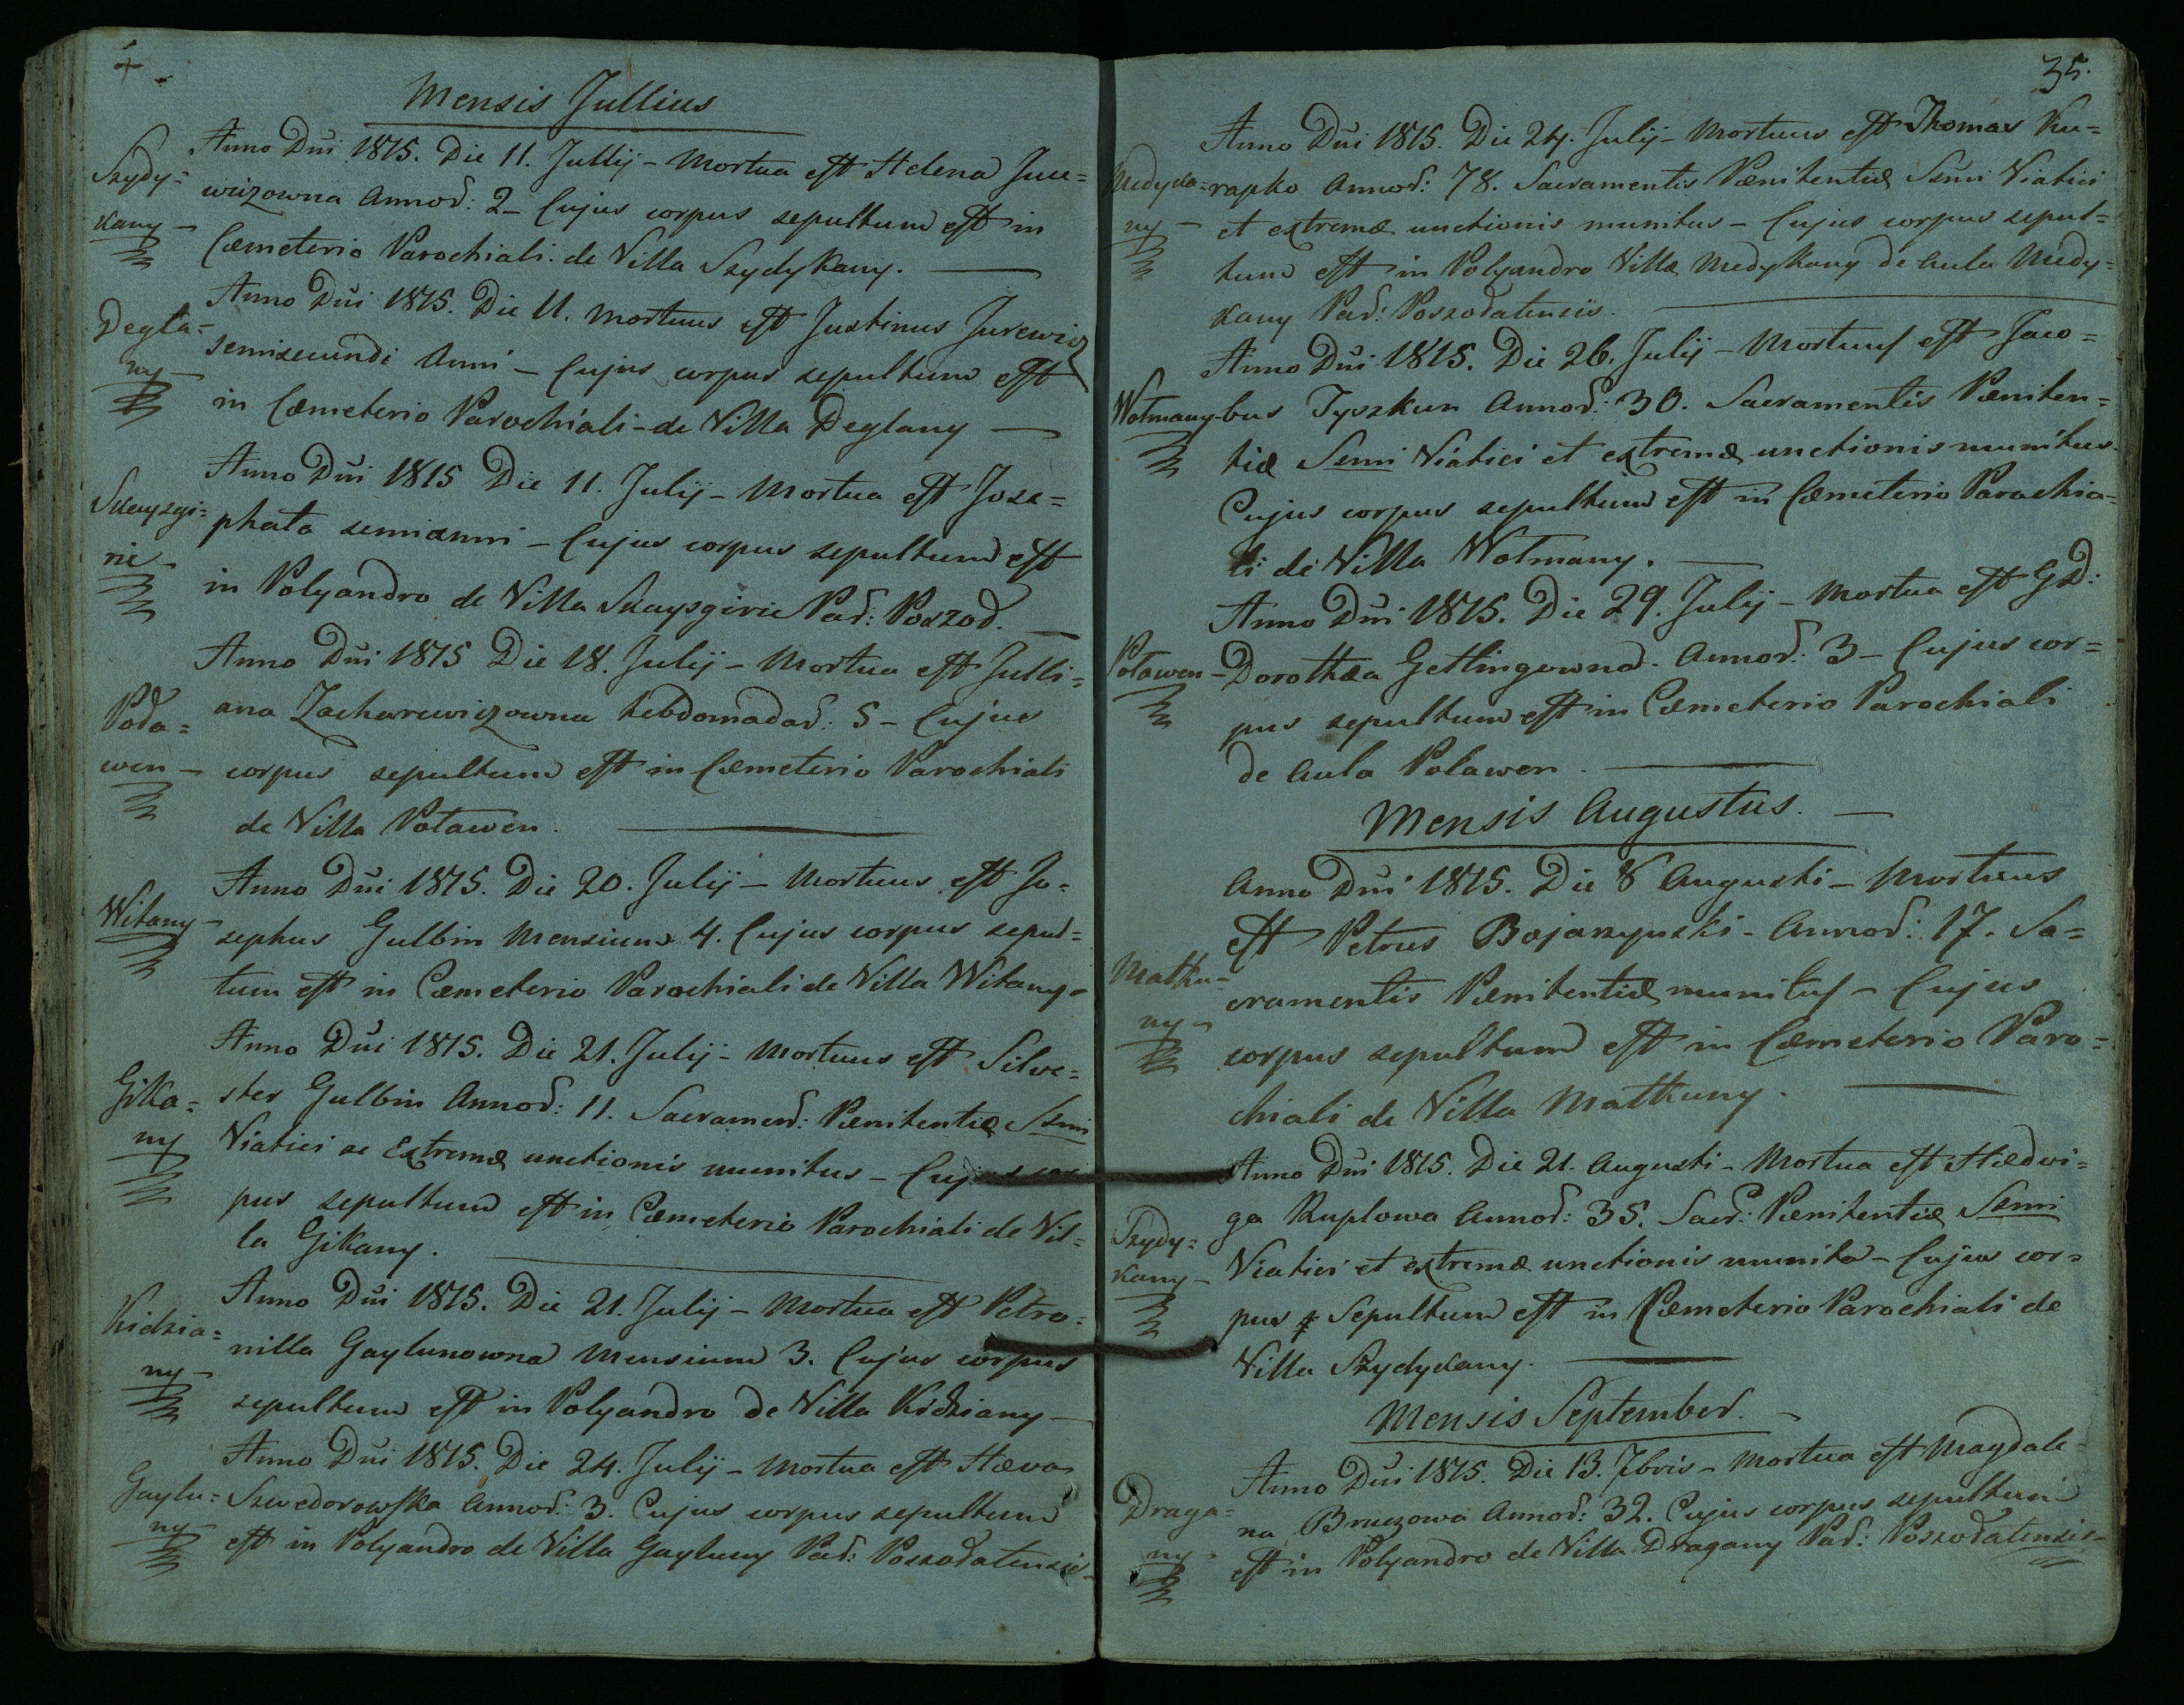 Mensis Jullius
Anno Dni 1815. Die 11. Jullij – Mortua est Helena Jure=
Szydy= wiczowna Annor: 2 – Cujus corpus sepultum est in
kany – Cæmeterio Parochiali de Villa Szydykany.
Anno Dni 1815. Die 11. Mortuus est Justinus Jurewicz
Degla= semisecundi Anni – Cujus corpus sepultum est
ny – in Cæmeterio Parochiali – de Villa Deglany
Anno Dni 1815 Die 11. Julij – Mortua est Joza=
Skaysgi= phata semianni – Cujus corpus sepultum est
rie – in Polyandro de Villa Skaysgirie Par: Poszod.
Anno Dni 1815 Die 18. Julij – Mortua est Julli=
Poła= ana Zacharewiczowna hebdomadar: 5 – Cujus
wen – corpus sepultum est in Cæmeterio Parochiali
de Villa Poławen.
Anno Dni 1815. Die 20. Julij – Mortuus est Jo=
Witany – sephus Gulbin Mensium 4. Cujus corpus sepul=
tum est in Cæmeterio Parochiali de Villa Witany –
Anno Dni 1815. Die 21. Julij – Mortuus est Silve=
Gika= ster Gulbin Annor: 11. Sacramen: Pænitentiæ Ssmi
ny Viatici ac Extremæ unctionis munitus – Cujus cor
pus sepultum est in Cæmeterio Parochiali de Vil=
la Gikany.
Anno Dni 1815. Die 21. Julij – Mortua est Petro=
Kidzia= nilla Gaylunowna Mensium 3. Cujus corpus
ny – sepultum est in Polyandro de Villa Kidziany –
Anno Dni 1815. Die 24. Julij – Mortua est Hæva
Gaylu= Szwedorowska Annor: 3. Cujus corpus sepultum
ny – est in Polyandro de Villa Gayluny Par: Poszodatensis –
35.
Anno Dni 1815. Die 24. Julij – Mortuus est Thomas Ku=
Medyka= rapko Annor: 78. Sacramentis Pænitentiæ Ssmi Viatici
ny – et extremæ unctionis munitus – Cujus corpus sepul=
tum est in Polyandro Villæ Medykany de Aula Medy=
kany Par: Poszodatensis.
Anno Dni 1815. Die 26. Julij – Mortuus est Jaco=
Wołmany – bus Tyszkun Annor: 30. Sacramentis Pæniten=
tiæ Ssmi Viatici et extremæ unctionis munitus.
Cujus corpus sepultum est in Cæmeterio Parochia=
li de Villa Wołmany.
Anno Dni 1815. Die 29. Julij – Mortua est GD:
Poławen – Dorothæa Getlingowna. Annor: 3 – Cujus cor=
pus sepultum est in Cæmeterio Parochiali
de Aula Polawen.
Mensis Augustus. –
Anno Dni 1815. Die 8 Augusti – Mortuus
est Petrus Bojarzynski – Annor: 17. Sa=
Matku= cramentis Pænitentiæ munitus – Cujus
ny – corpus sepultum est in Cæmeterio Paro=
chiali de Villa Matkuny.
Anno Dni 1815. Die 21. Augusti – Mortua est Hædvi=
ga Ruplowa Annor: 35. Sacr: Pænitentiæ Ssmi
Szydy= Viatici et extremæ unctionis munita – Cujus cor=
kany – pus Sepultum est in Cæmeterio Parochiali de
Villa Szydykany.
Mensis September. –
Anno Dni 1815. Die 13. 7bris – Mortua est Magdale=
Draga= na Bruczowa Annor: 32. Cujus corpus sepultum
ny – est in Polyandro de Villa Dragany Par: Poszodatensis –